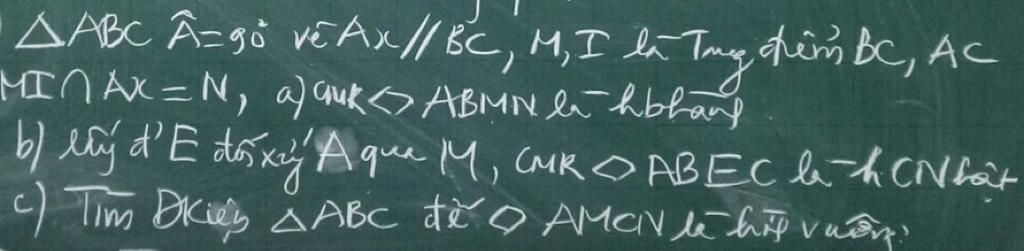 △ABC Â=90° vẽ Ax // BC, M, I là Trung điểm BC, AC
MI ∩ Ax = N, a) CMR ◇ ABMN là hbhành
b) lấy đ' E đối xứng A qua M, CMR ◇ ABEC là hCNhật
c) Tìm ĐKiện △ABC để ◇ AMCN là hình vuông.